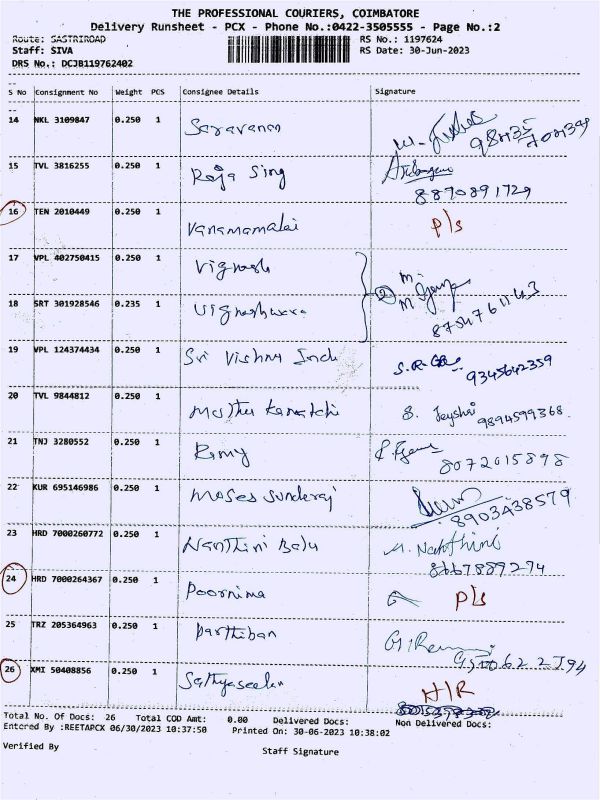 THE PROFESSIONAL COURIERS, COIMBATORE
Delivery Runsheet - PCX - Phone No.:0422-3505555 - Page No.:2
Route: SASTRIROAD RS No.: 1197624
Staff: SIVA RS Date: 30-Jun-2023
DRS No.: DCJB119762402
S No Consignment No Weight PCS Consignee Details Signature
14 NKL 3109847 0.250 1 Saravanan
15 TVL 3816255 0.250 1 Raja Sing
8870891729
16 TEN 2010449 0.250 1 Vanamamalai P/s
17 VPL 402750415 0.250 1 Vignesh
18 SRT 301928546 0.235 1 Vigneshwara 2
19 VPL 124374434 0.250 1 Sri Vishnu Ind
9345642359
20 TVL 9844812 0.250 1 Muthu Kamatchi
9894599368
21 TNJ 3280552 0.250 1 Remy
8072015898
22 KUR 695146986 0.250 1 Moses Sunderaj
8903438579
23 HRD 7000260772 0.250 1 Nanthini Balu M. Naththini
8667889274
24 HRD 7000264367 0.250 1 Poornima P/s
25 TRZ 205364963 0.250 1 Parthiban
26 XMI 50408856 0.250 1 Sathyaseelan
Total No. Of Docs: 26 Total COD Amt: 0.00 Delivered Docs: Non Delivered Docs:
Entered By :REETAPCX 06/30/2023 10:37:50 Printed On: 30-06-2023 10:38:02
Verified By Staff Signature